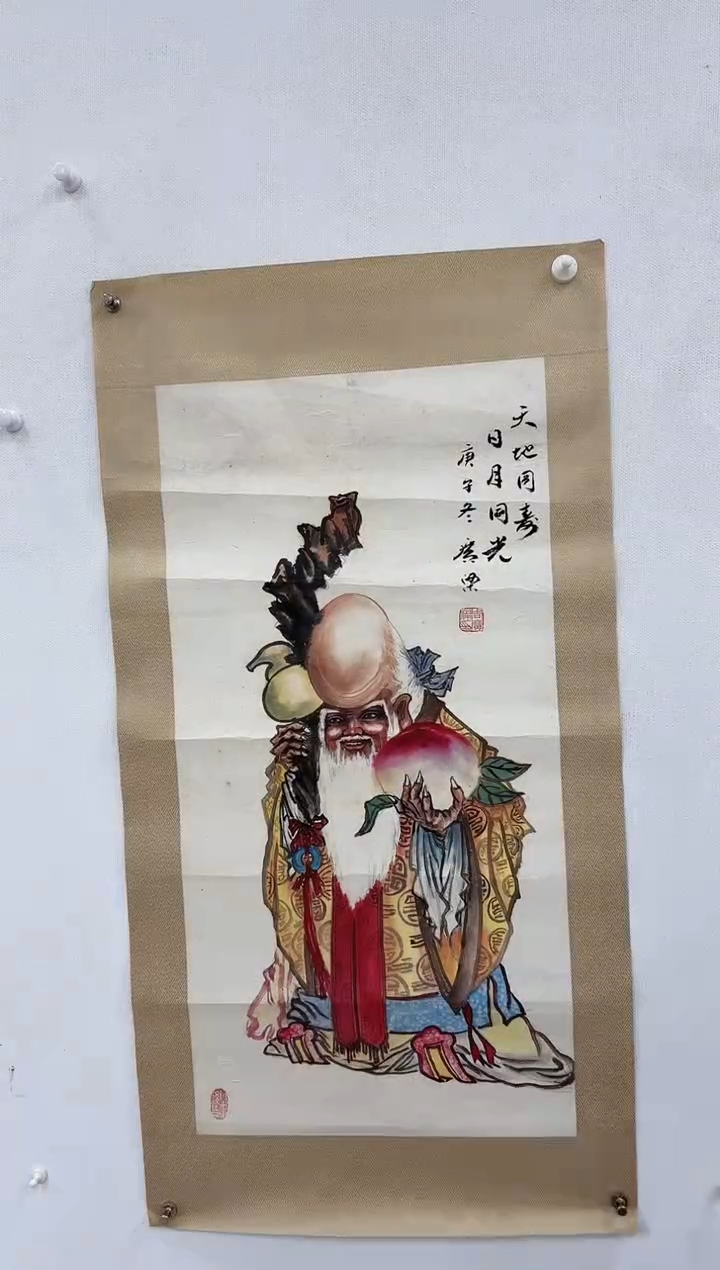 天地同寿
日月同光
庚午冬 广梁